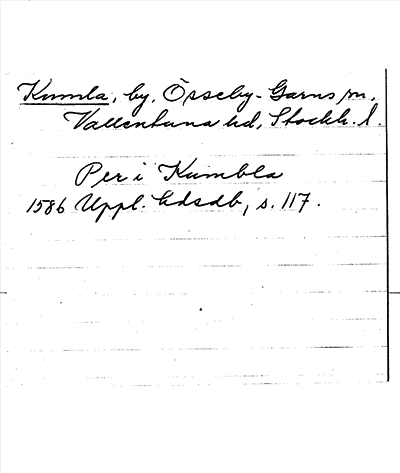 Kumla, by, Össeby-Garns sn,
Vallentuna hd, Stockh. l.
Per i Kumbla
1586 Uppl. Edsdb, s. 117.